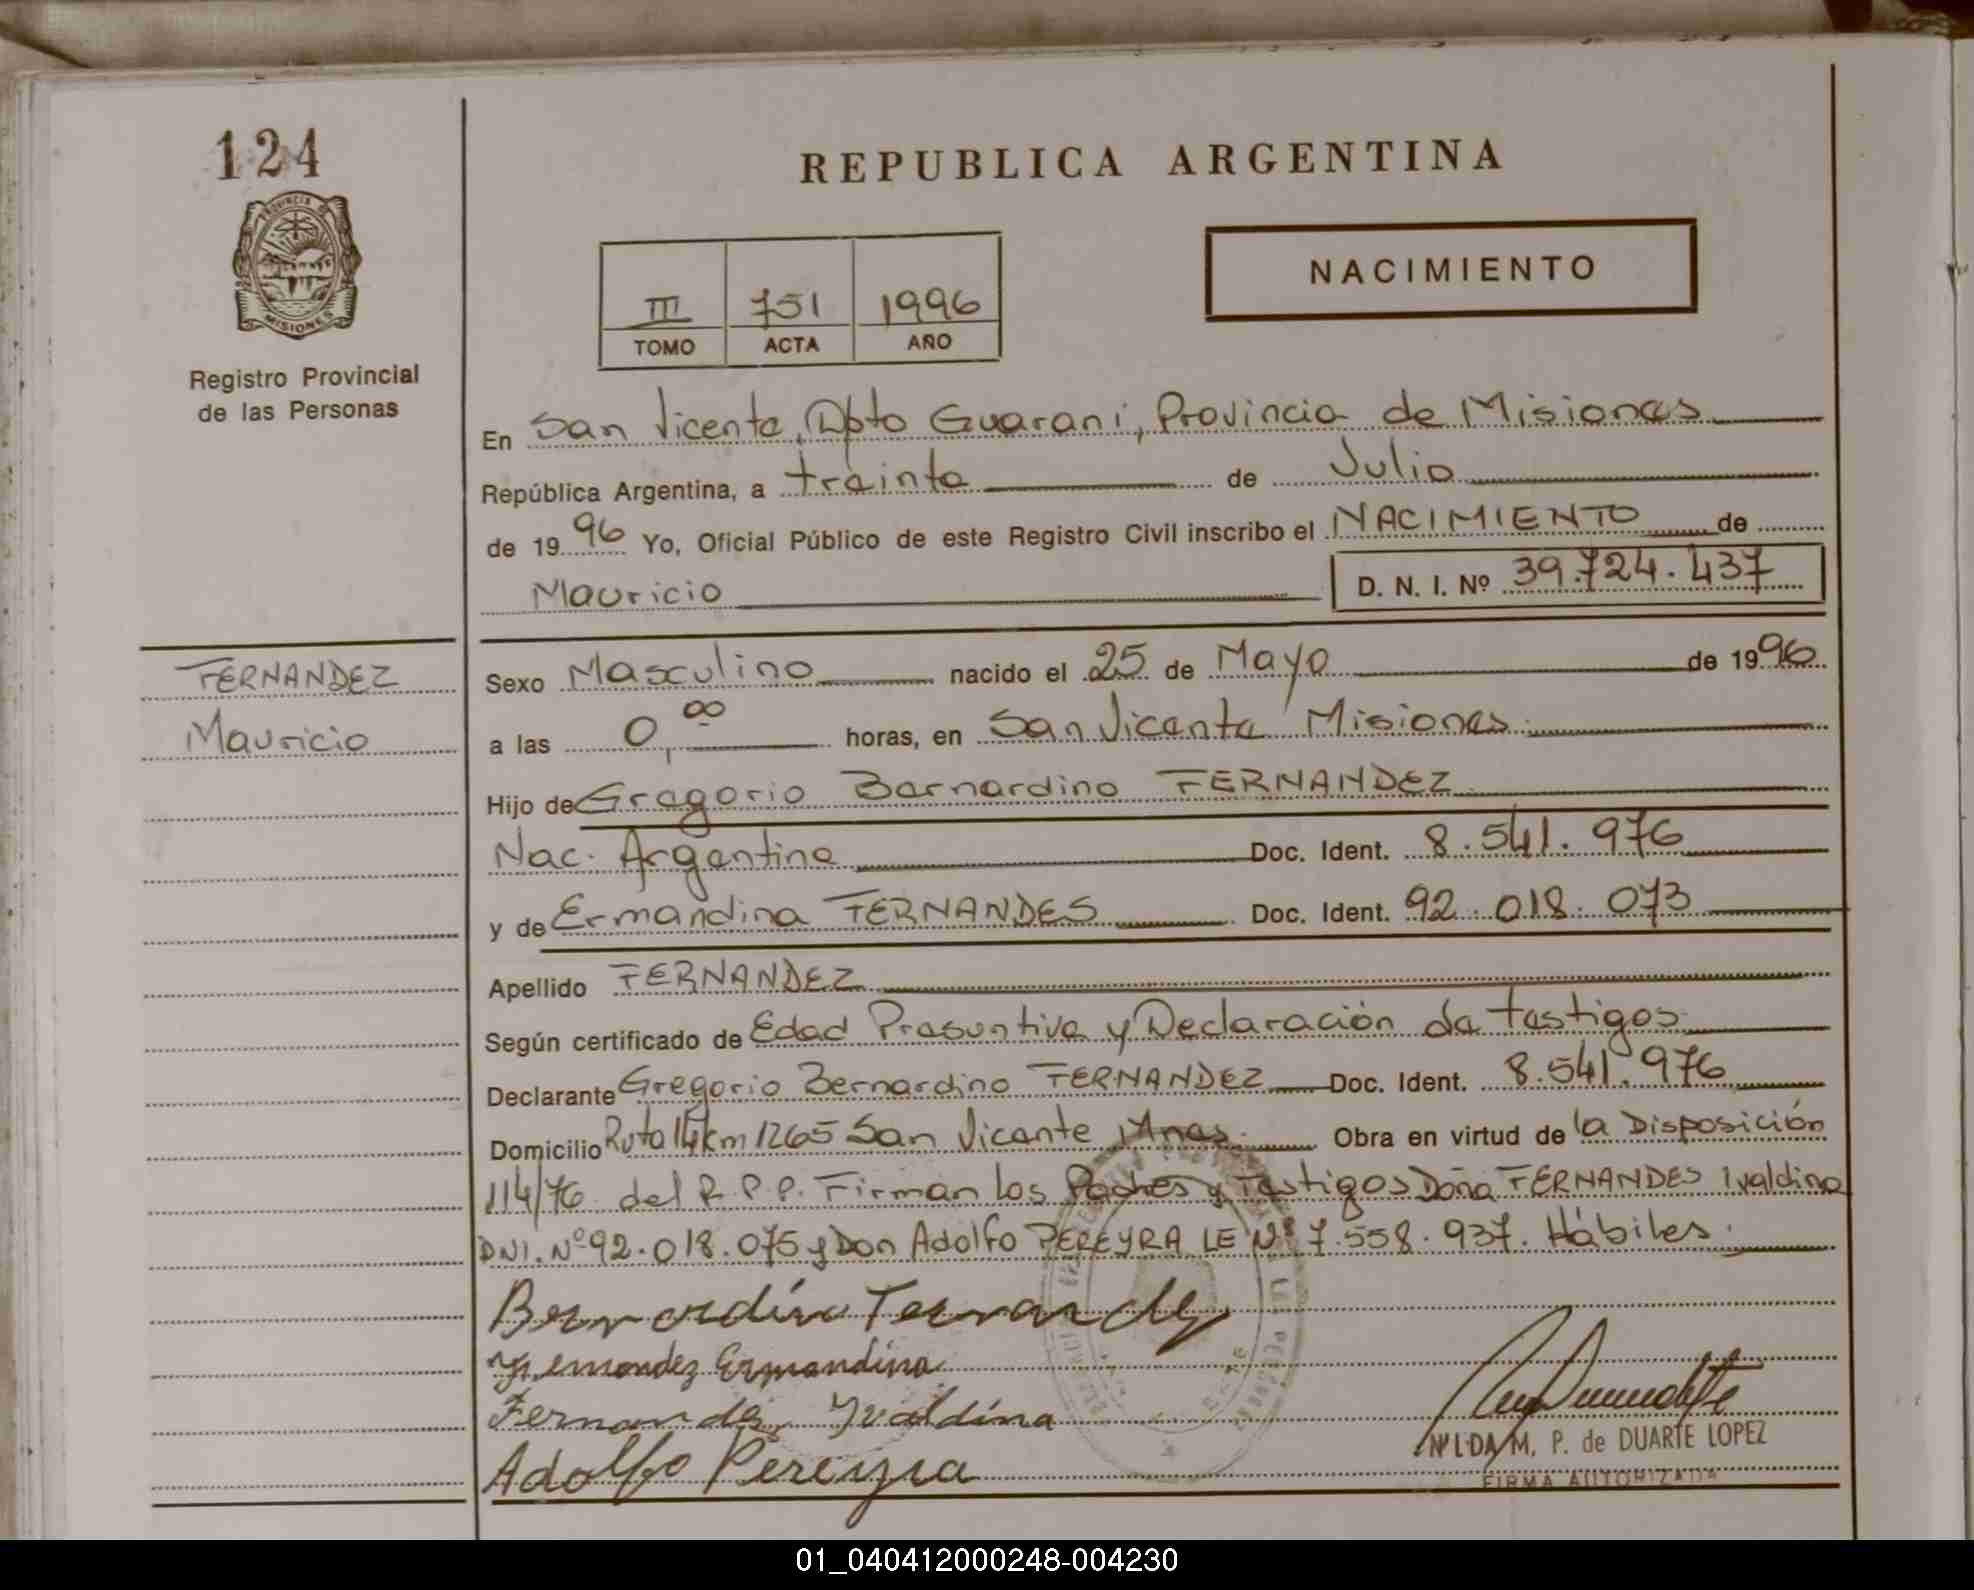 124
REPUBLICA ARGENTINA
PROVINCIA DE
MISIONES
Registro Provincial
de las Personas
III 751 1996
TOMO ACTA AÑO
NACIMIENTO
En San Vicente, Dpto Guarani, Provincia de Misiones
República Argentina, a treinta de Julio
de 1996 Yo, Oficial Público de este Registro Civil inscribo el NACIMIENTO de
Mauricio D. N. I. Nº 39.724.437
FERNANDEZ
Mauricio
Sexo Masculino nacido el 25 de Mayo de 1996
a las 0,00 horas, en San Vicente Misiones
Hijo de Gregorio Bernardino FERNANDEZ
Nac. Argentina Doc. Ident. 8.541.976
y de Ermandina FERNANDES Doc. Ident. 92.018.073
Apellido FERNANDEZ
Según certificado de Edad Presuntiva y Declaración de testigos
Declarante Gregorio Bernardino FERNANDEZ Doc. Ident. 8.541.976
Domicilio Ruta 14 km 1265 San Vicente Mnes. Obra en virtud de la Disposición
114/76 del R.P.P. Firman los Padres y Testigos Doña FERNANDES Ivaldina
DNI. Nº 92.018.075 y Don Adolfo PEREYRA LE Nº 7.558.937. Hábiles.
Bernardino Fernandez
Fernandez Ermandina
Fernandez Ivaldina
Adolfo Pereyra
NILDA M. P. de DUARTE LOPEZ
FIRMA AUTORIZADA
01_040412000248-004230